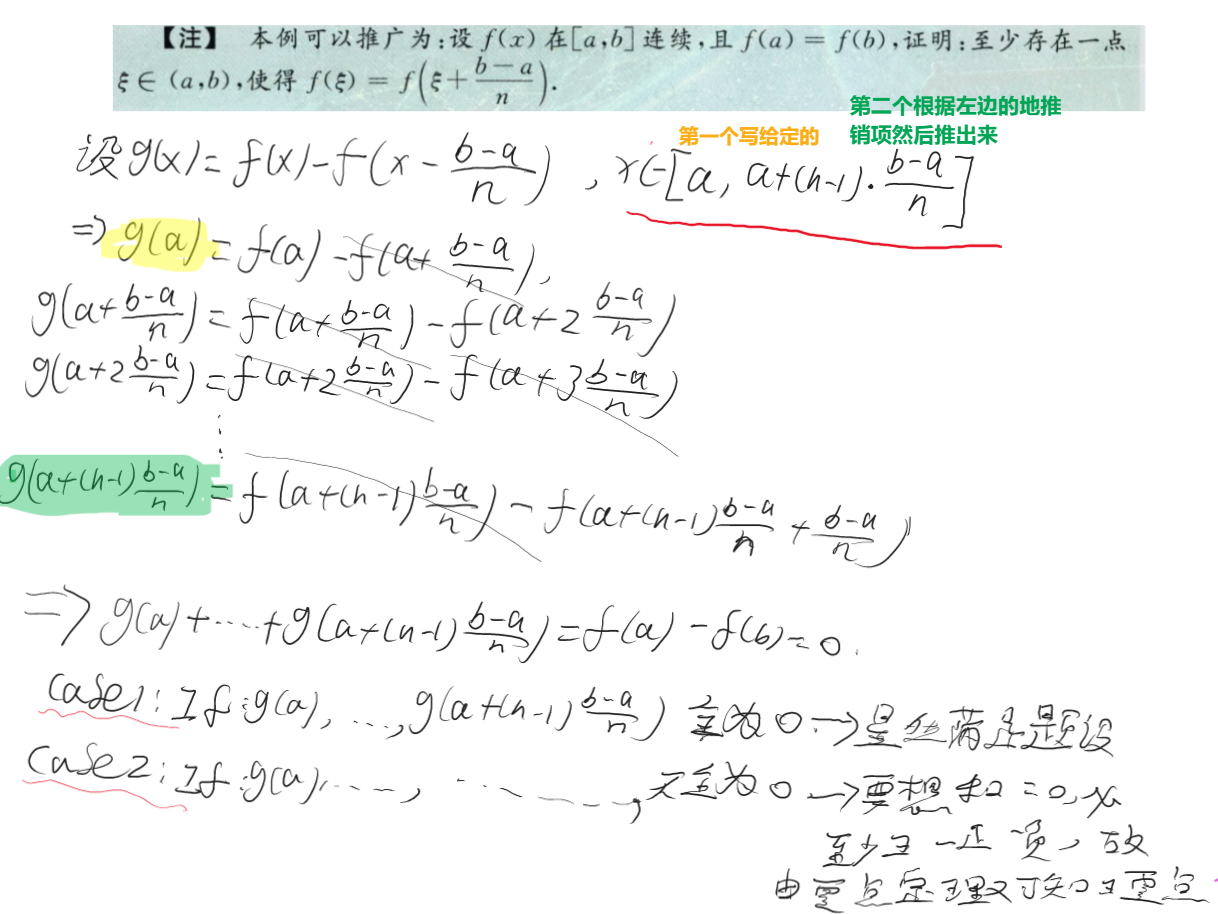 【注】 本例可以推广为:设 f(x) 在[a,b] 连续,且 f(a) = f(b),证明:至少存在一点
ξ ∈ (a,b),使得 f(ξ) = f(ξ + (b-a)/n).
第二个根据左边的地推
第一个写给定的 销项然后推出来
设 g(x) = f(x) - f(x - (b-a)/n) , x∈[a, a+(n-1)·(b-a)/n]
=> g(a) = f(a) - f(a + (b-a)/n),
g(a + (b-a)/n) = f(a + (b-a)/n) - f(a + 2 (b-a)/n)
g(a + 2 (b-a)/n) = f(a + 2 (b-a)/n) - f(a + 3 (b-a)/n)
⋮
g(a + (n-1) (b-a)/n) = f(a + (n-1) (b-a)/n) - f(a + (n-1) (b-a)/n + (b-a)/n)
=> g(a) + ··· + g(a + (n-1) (b-a)/n) = f(a) - f(b) = 0.
Case1: If: g(a), ···, g(a + (n-1) (b-a)/n) 全为0 → 显然满足题设
Case2: If: g(a), ····, ····, 不全为0 → 要想和 = 0, 必
至少有一正一负, 故
由零点定理可知有零点